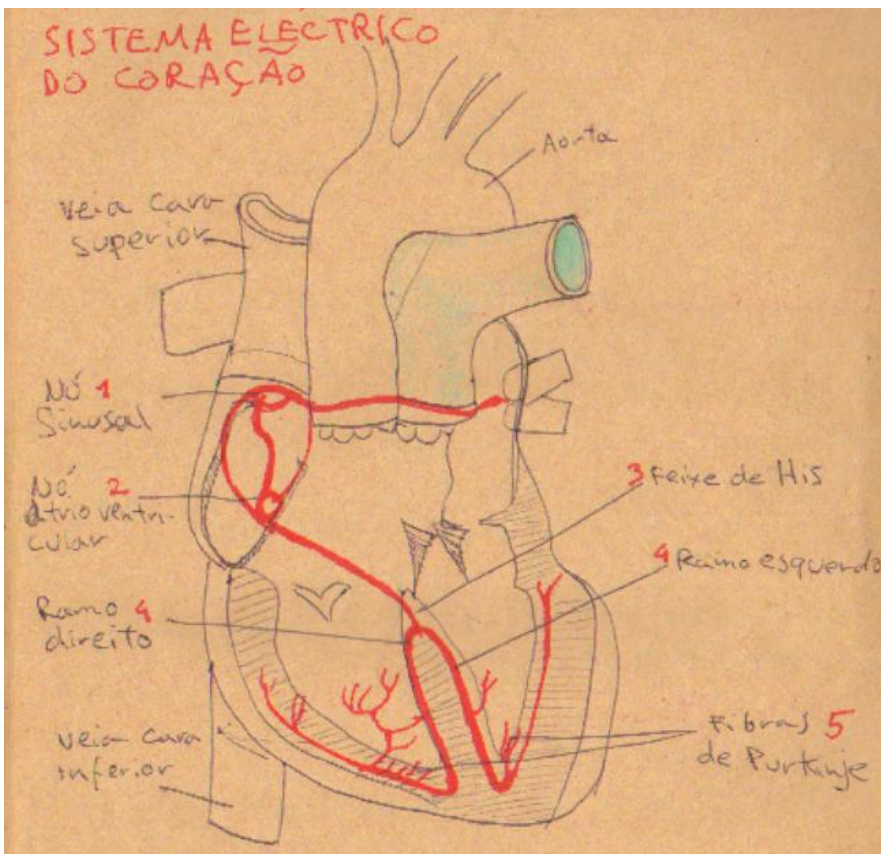 SISTEMA ELÉCTRICO
DO CORAÇÃO
Aorta
Veia Cava
superior
Nó 1
Sinusal
Nó 2
Atrioventri-
cular
3 Feixe de His
4 Ramo esquerdo
Ramo 4
direito
Veia Cava
Inferior
Fibras 5
de Purkinje